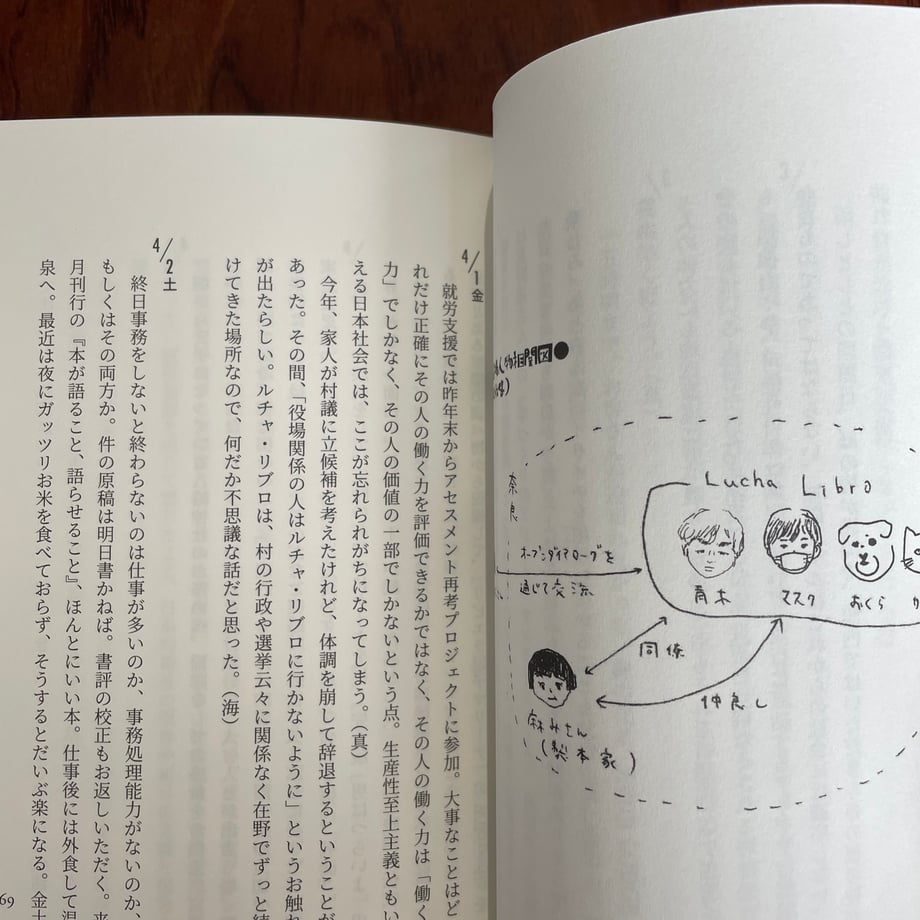 人物相関図●
奈良
Lucha Libro
オープンダイアローグを
通じて交流
青木
マスク
おくら
仲良し
(製本家)
4/1金
就労支援では昨年末からアセスメント再考プロジェクトに参加。大事なことはど
れだけ正確にその人の働く力を評価できるかではなく、その人の働く力は「働く
力」でしかなく、その人の価値の一部でしかないという点。生産性至上主義ともい
える日本社会では、ここが忘れられがちになってしまう。(真)
今年、家人が村議に立候補を考えたけれど、体調を崩して辞退するということが
あった。その間、「役場関係の人はルチャ・リブロに行かないように」というお触れ
が出たらしい。ルチャ・リブロは、村の行政や選挙云々に関係なく在野でずっと
けてきた場所なので、何だか不思議な話だと思った。(海)
4/2土
終日事務をしないと終わらないのは仕事が多いのか、事務処理能力がないのか、
もしくはその両方か。件の原稿は明日書かねば。書評の校正もお返しいただく。来
月刊行の『本が語ること、語らせること』、ほんとにいい本。仕事後には外食して
泉へ。最近は夜にガッツリお米を食べておらず、そうするとだいぶ楽になる。金土
69